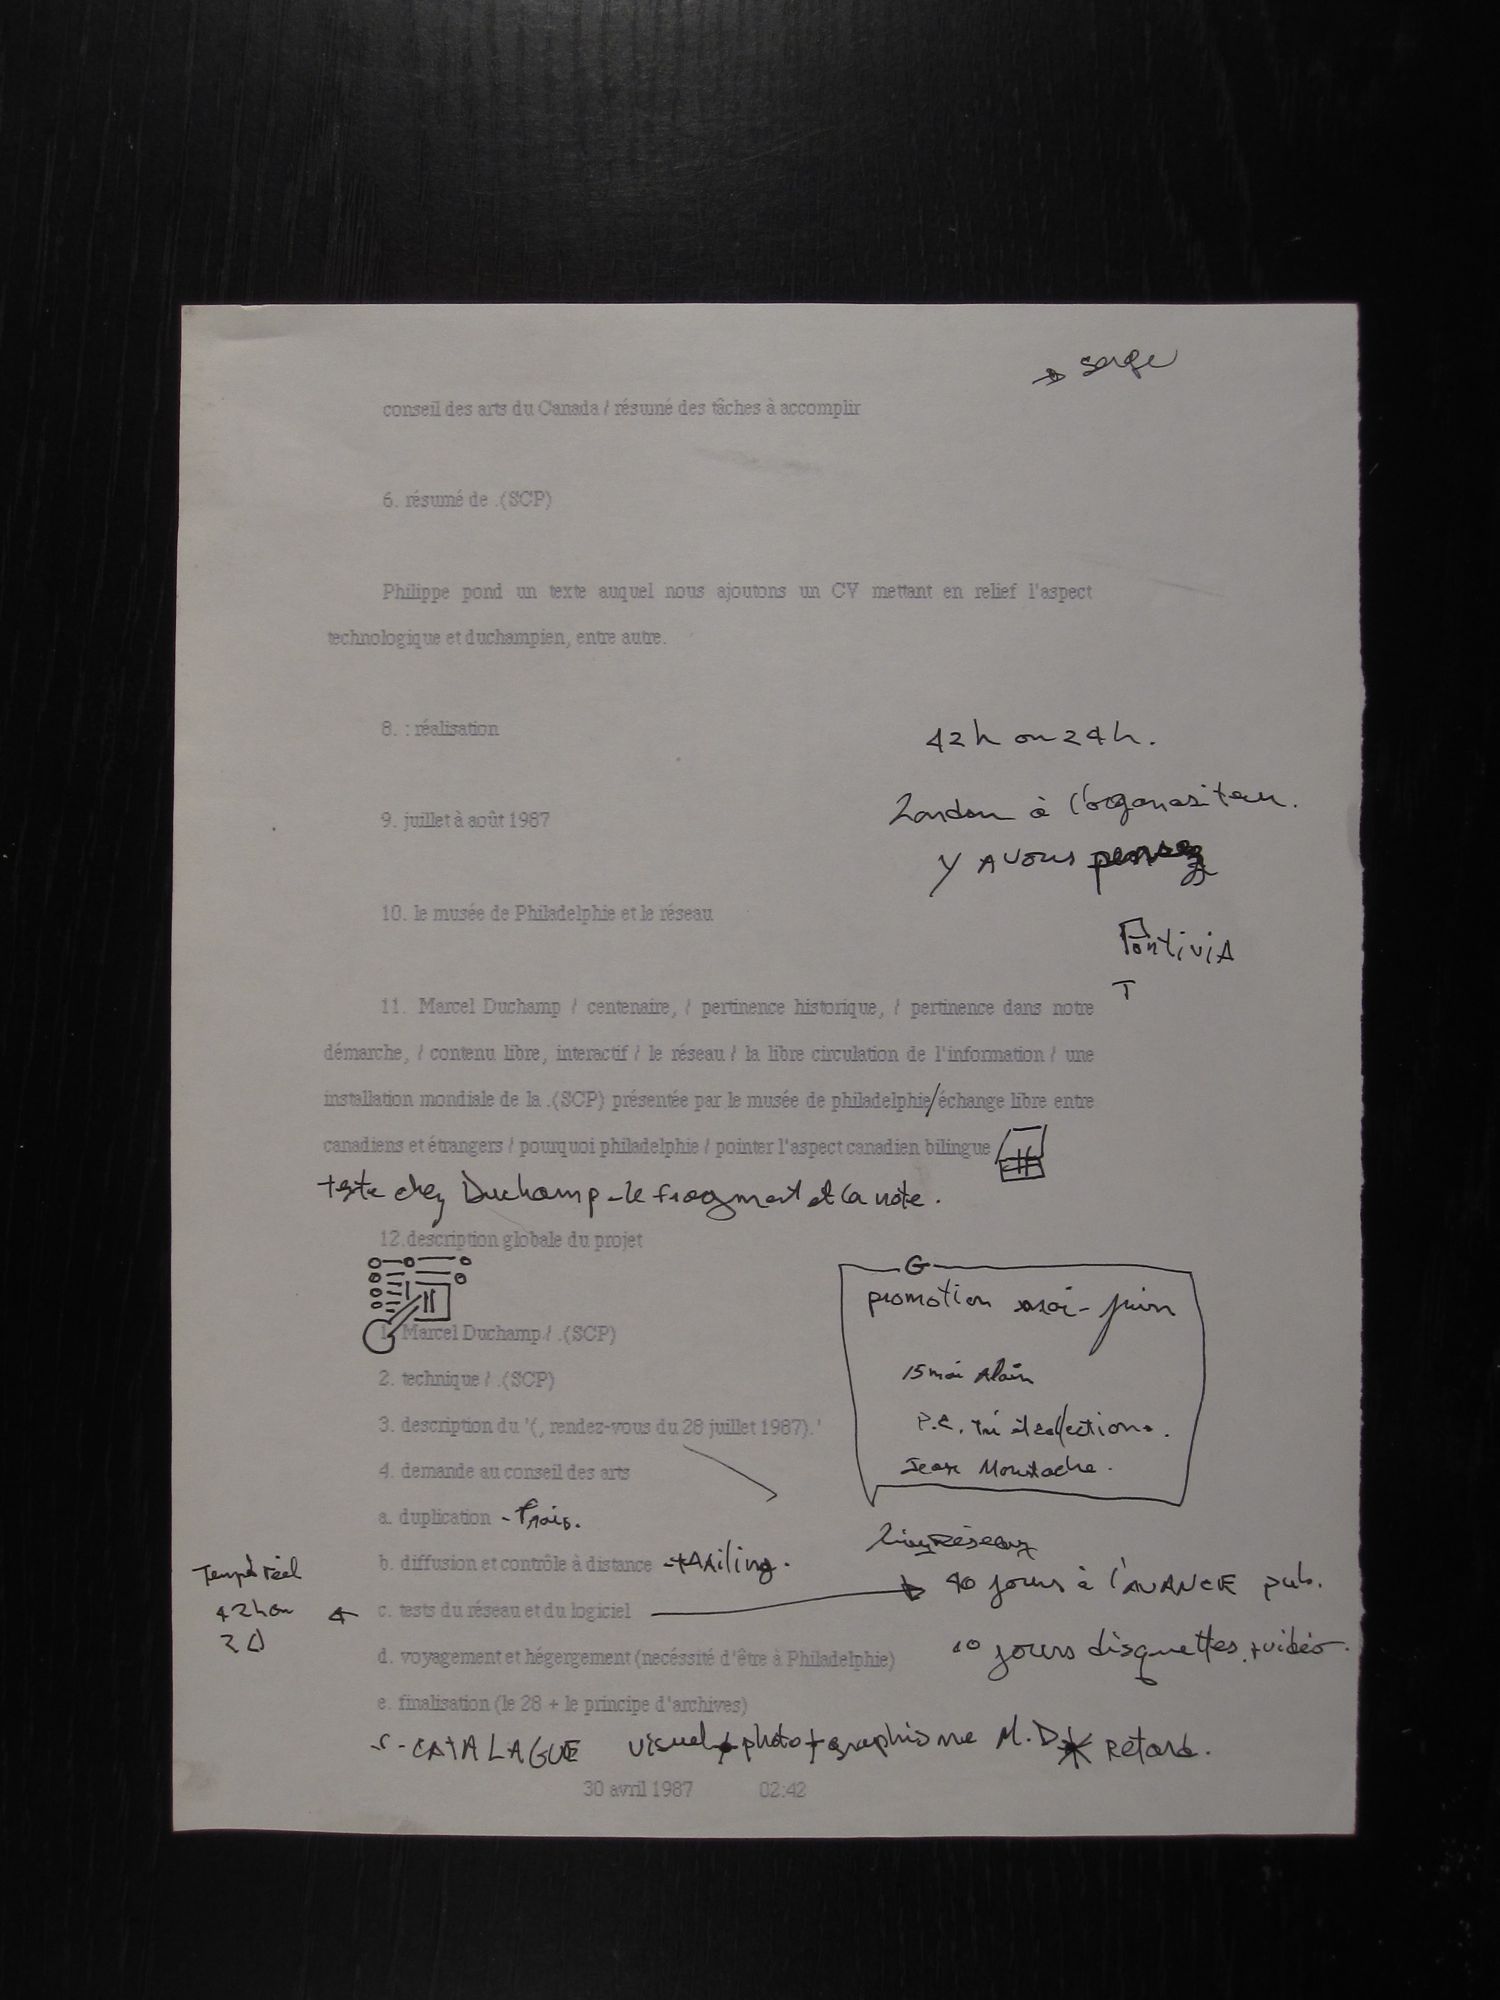 → serge
conseil des arts du Canada / résumé des tâches à accomplir
6. résumé de .(SCP)
Philippe pond un texte auquel nous ajoutons un CV mettant en relief l'aspect
technologique et duchampien, entre autre.
8. : réalisation
42h ou 24h.
9. juillet à août 1987
à l'organisateur.
Y avous pensez
10. le musée de Philadelphie et le réseau
PontiviA
T
11. Marcel Duchamp / centenaire, / pertinence historique, / pertinence dans notre
démarche, / contenu libre, interactif / le réseau / la libre circulation de l'information / une
installation mondiale de la .(SCP) présentée par le musée de philadelphie/échange libre entre
canadiens et étrangers / pourquoi philadelphie / pointer l'aspect canadien bilingue
texte chez Duchamp - le fragment et la note.
12.description globale du projet
G
promotion mai - juin
15 mai Alain
P.C. tri et collections.
Jean Moustache.
1. Marcel Duchamp / .(SCP)
2. technique / .(SCP)
3. description du '(, rendez-vous du 28 juillet 1987).'
4. demande au conseil des arts
a. duplication - frais.
b. diffusion et contrôle à distance - mailing.
Temps réel
42h ou
c. tests du réseau et du logiciel → 40 jours à l'AVANCE pub.
d. voyagement et hégergement (necéssité d'être à Philadelphie)
10 jours disquettes + vidéo.
e. finalisation (le 28 + le principe d'archives)
CATALAGUE visuel + photo + graphisme M.D * retard.
30 avril 1987 02:42